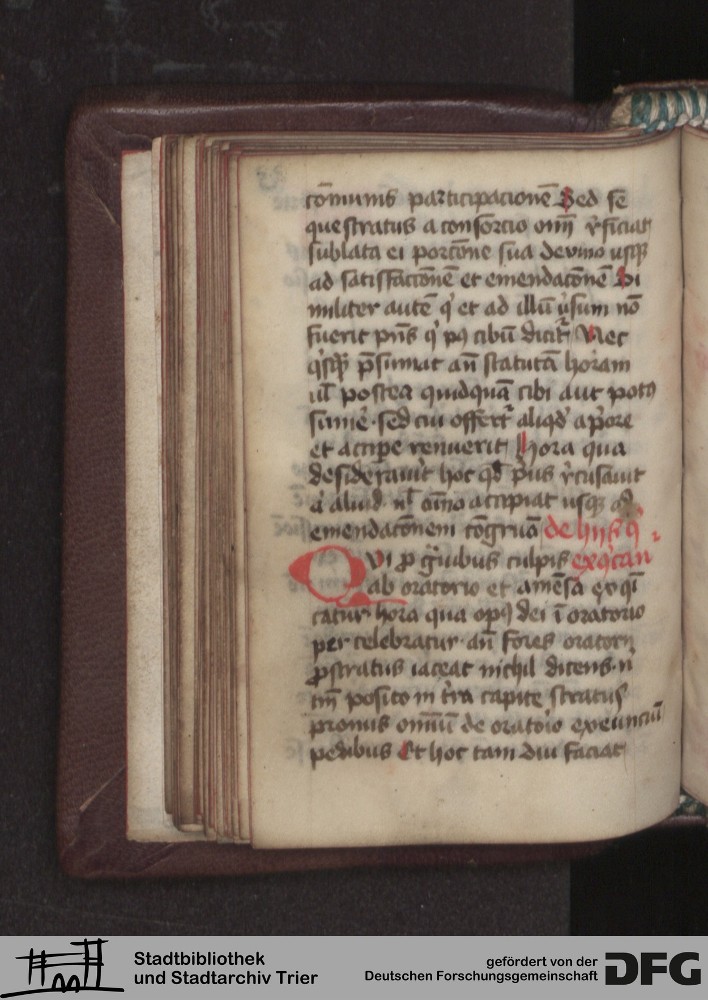 cōmunis participacionē Sed se
questratus a consorcio om̄i r̄ficiat
sublata ei porcōne sua de vino usq̄
ad satisfactōnē et emendacōnē Si
militer autē q' et ad illū v̄sum nō
fuerit pn̄s q' p9 cibū dicit͛ Nec
q'sq̄ p̄sumat an̄ statutā horam
ul' postea quidquā cibi aut potus
sūme' · sed cui offert͛ aliqd' a p'ore
et accipe renuerit hora qua
desideraūit hoc qd' p'us r̄cusauit
a' aliud · nl' om̄o accipiat usq̄ ad
emendacōnem congruā de hijs q'
Qvi p̄ g̈uibus culpis excōcan
ab oratorio et a mēsa excōi
catur hora qua op9 dei ī oratorio
per celebratur · an̄ fores oratorij
p̄stratus iaceat nichil dicens · n'
tm̄ posito in t'ra capite stratus
pronus omniū de orato'io exeunciū
pedibus Et hoc tam diu faciat
Stadtbibliothek
und Stadtarchiv Trier
gefördert von der
Deutschen Forschungsgemeinschaft
DFG